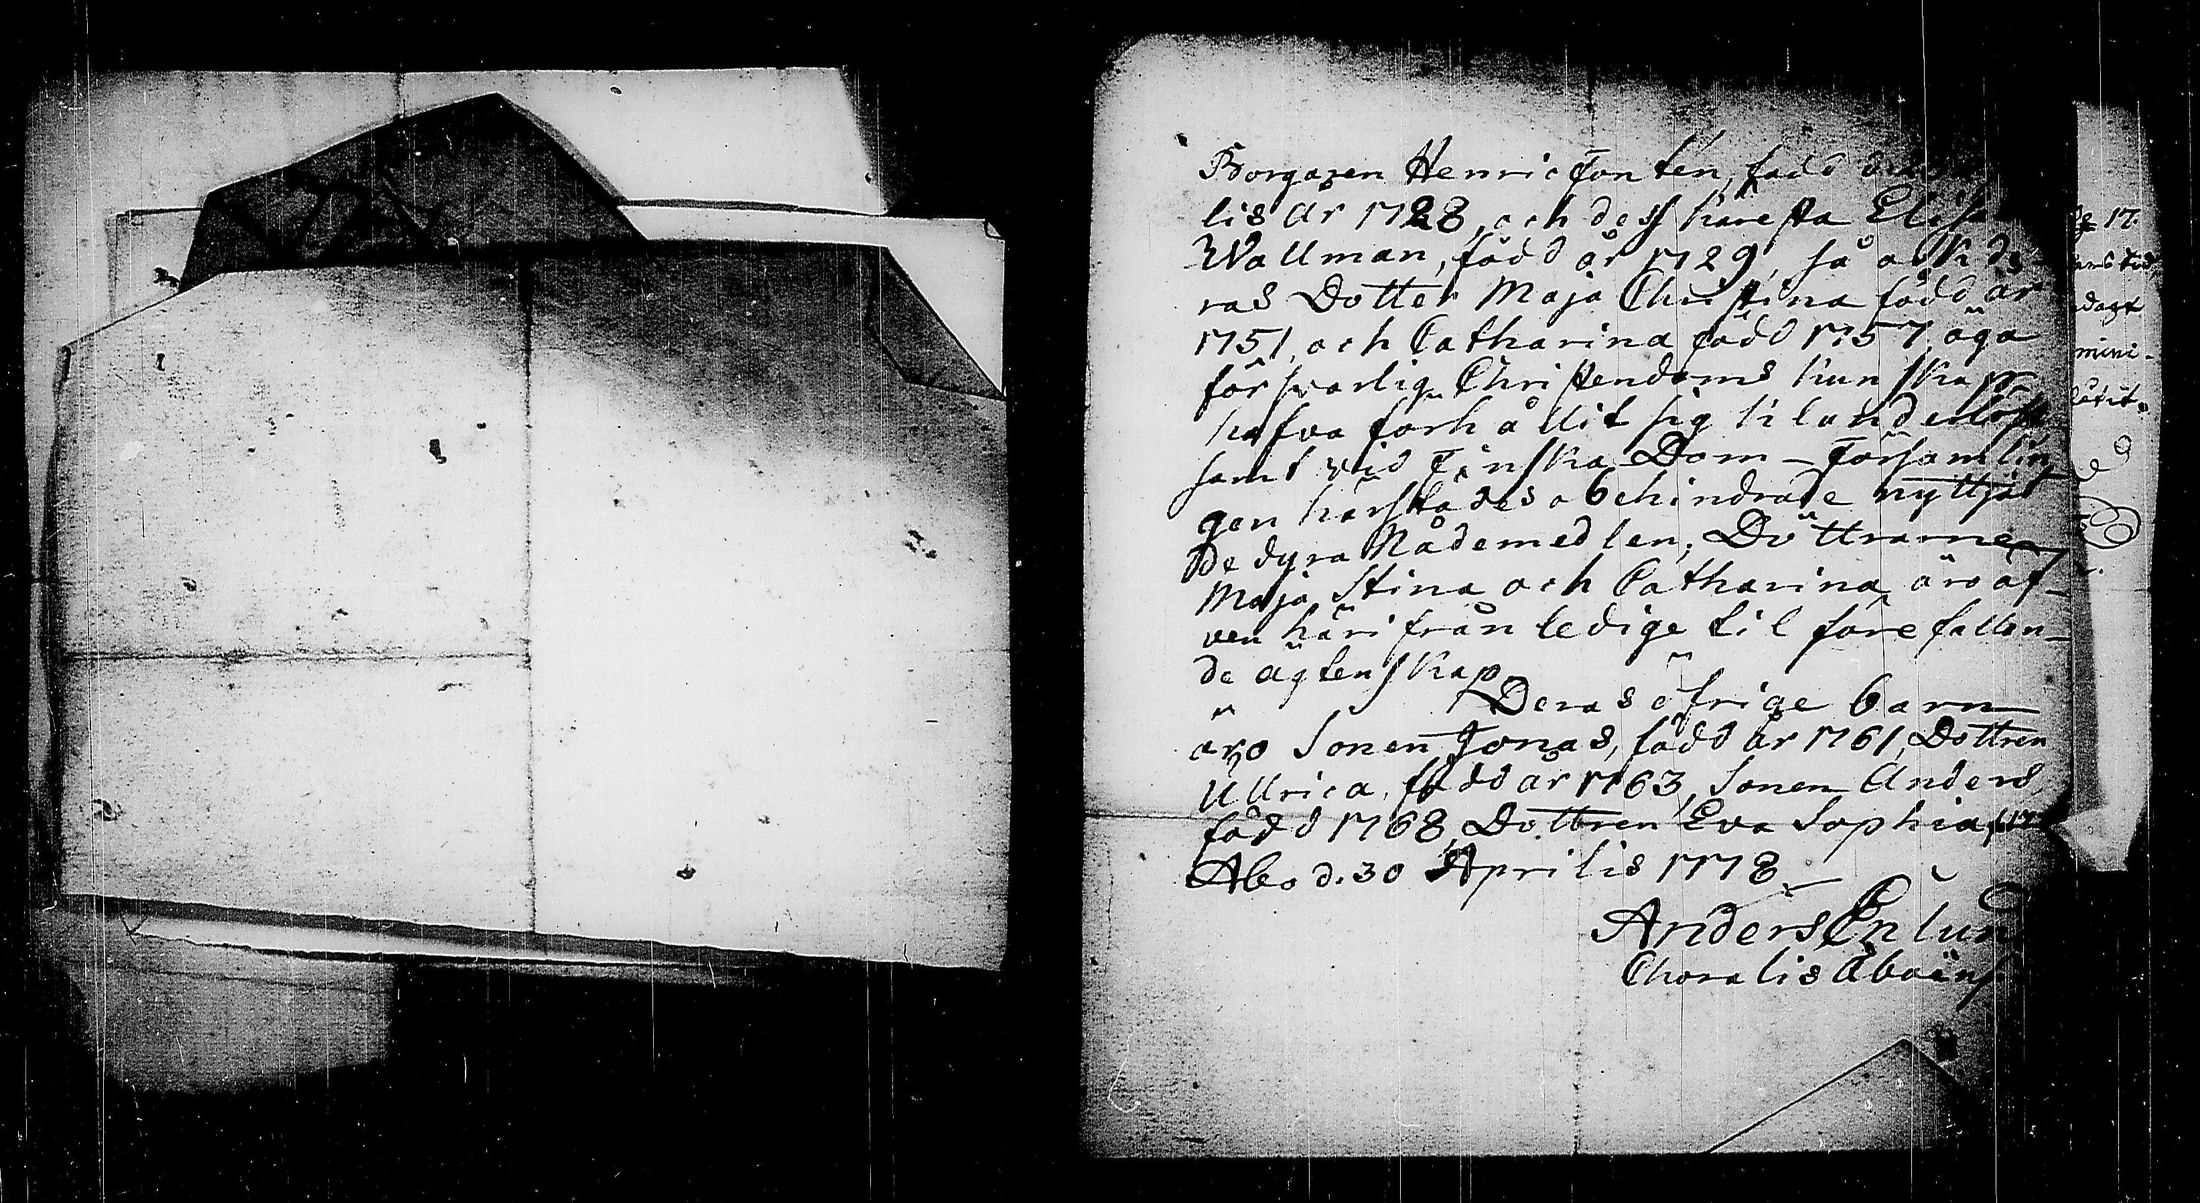 Borgaren Henric Fontén, född
lis år 1728, och dess käresta Elisa
Wallman, född år 1729, så ock de-
ras Dotter Maja Christina född år
1751, och Catharina född 1757, äga
försvarlig Christendoms kunskap
hafva förhållit sig
samt vid Finska Dom-Församlin
gen härstädes obehindrade nyttjat
de dyra Nådemedlen; Döttrarne
Maja Stina och Catharina äro äf-
ven härifrån ledige til förefallan-
de ägtenskap.
Deras öfrige barn
äro Sonen Jonas, född år 1761, Dottren
Ullrica, född år 1763, Sonen Anders,
född 1768, Dottren Eva Sophia
Åbo d. 30 Aprilis 1778
Anders Enlund
Choralis Aboëns
17.
dagt
mini-